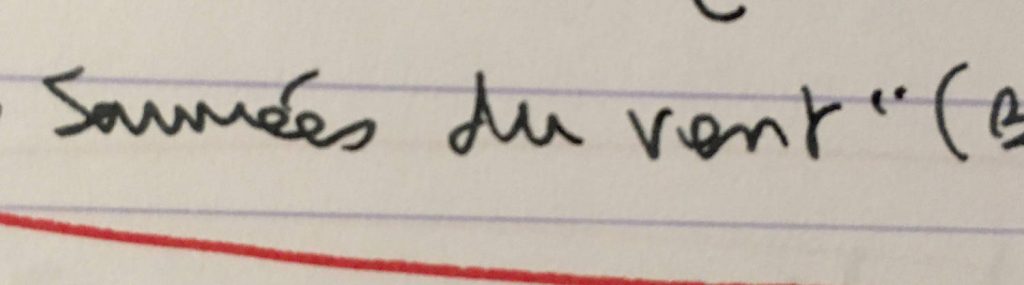 Sauvées du vent" (B